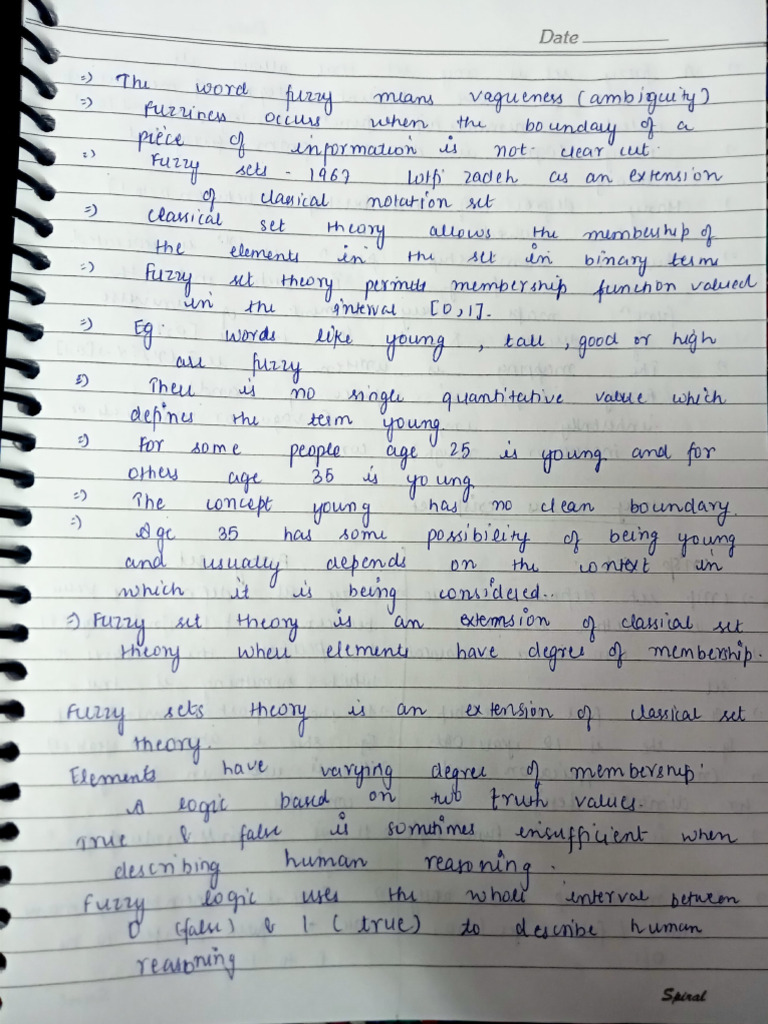 Date
=) The word fuzzy means vagueness (ambiguity)
=) fuzziness occurs when the boundary of a
piece of information is not clear cut.
=) Fuzzy sets - 1967 Lotfi zadeh as an extension
of classical notation set
=) classical set theory allows the membership of
the elements in the set in binary term
=) Fuzzy set theory permits membership function valued
in the interval [0,1].
=) Eg words like young, tall, good or high
are fuzzy
=) There is no single quantitative value which
defines the term young
=) For some people age 25 is young and for
others age 35 is young
=) The concept young has no clean boundary.
=) Age 35 has some possibility of being young
and usually depends on the context in
which it is being considered..
=) Fuzzy set theory is an extension of classical set
theory when elements have degree of membership.
Fuzzy sets theory is an extension of classical set
theory.
Elements have varying degree of membership.
A logic based on two truth values.
True & false is somtimes insufficient when
describing human reasoning.
Fuzzy logic uses the whole interval between
0 (false) & 1 (true) to describe human
reasoning
Spiral